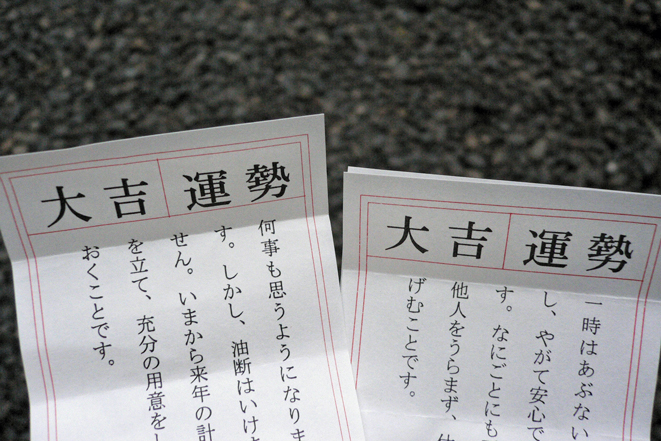 大吉 運勢
何事も思うようになりま
す。しかし、油断はいけ
せん。いまから来年の計
を立て、充分の用意を
おくことです。
大吉 運勢
一時はあぶない
し、やがて安心で
す。なにごとにも
他人をうらまず、
げむことです。